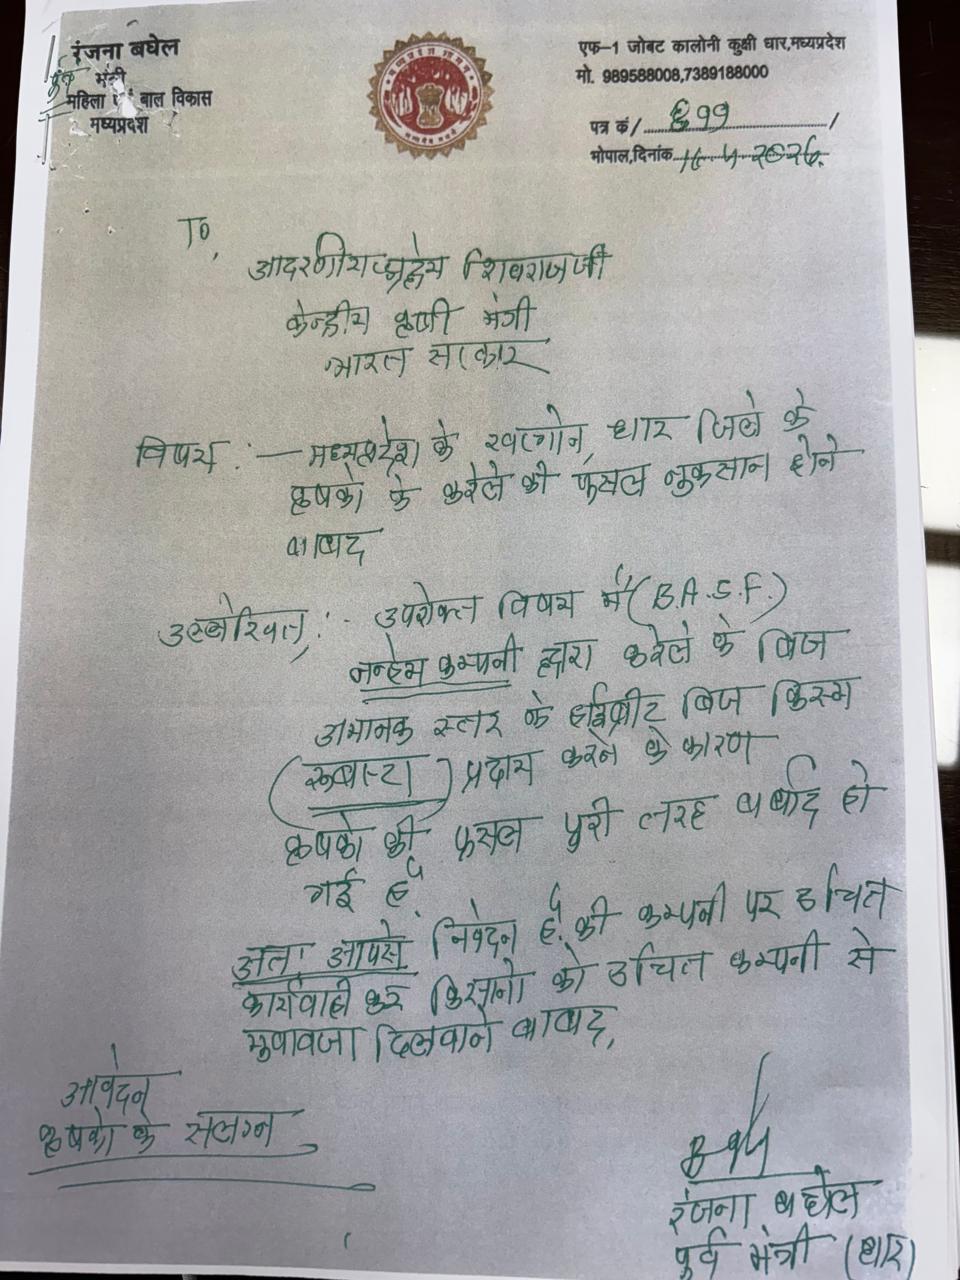 रंजना बघेल
पूर्व मंत्री
महिला एवं बाल विकास
मध्यप्रदेश
एफ-1 जोबट कालोनी कुक्षी धार,मध्यप्रदेश
मो. 989588008,7389188000
पत्र कं/ ६११ /
भोपाल,दिनांक
To,
आदरणीय श्रद्धेय शिवराजजी
केन्द्रीय कृषी मंत्री
भारत सरकार
विषय :— मध्यप्रदेश के खरगोन, धार जिले के
कृषको के करेले की फसल नुकसान होने
बाबद
उल्लेखित,:- उपरोक्त विषय में (B.A.S.F.)
नन्हेम कम्पनी द्वारा करेले के बिज
अमानक स्तर के हाईब्रीट बिज किस्म
(रूबास्टा) प्रदाय करने के कारण
कृषको की फसल पुरी तरह बर्बाद हो
गई है.
अतः आपसे निवेदन है. की कम्पनी पर उचित
कार्यवाही कर किसानो को उचित कम्पनी से
मुवावजा दिलवाने बाबद,
आवेदन
कृषको के सलग्न
रंजना बघेल
पूर्व मंत्री (धार)